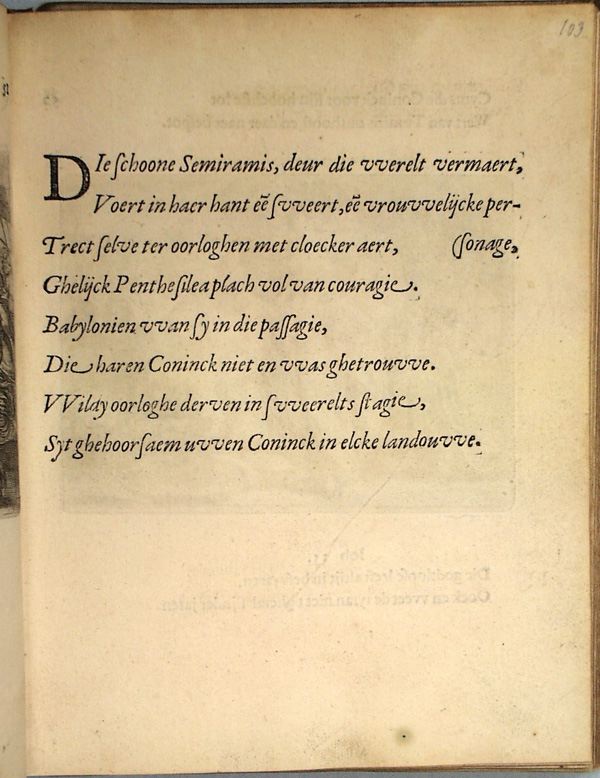 103
DIe schoone Semiramis, deur die vverelt vermaert,
Voert in haer hant eẽ svveert, eẽ vrouvvelijcke per-
Trect selve ter oorloghen met cloecker aert, (sonage,
Ghelijck Penthesilea plach vol van couragie.
Babylonien vvan sy in die passagie,
Die haren Coninck niet en vvas ghetrouvve.
VVildy oorloghe derven in svveerelts stagie,
Syt ghehoorsaem uvven Coninck in elcke landouvve.